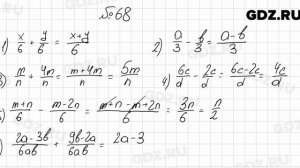 GDZ.RU
№68
1) x/6 + y/6 = (x+y)/6 2) a/3 - b/3 = (a-b)/3
) m/n + 4m/n = (m+4m)/n = 5m/n 4) 6c/d - 2c/d = (6c-2c)/d = 4c/d
) (m+n)/6 - (m-2n)/6 = (m+n-m+2n)/6 = 3n/6 = n/2
) (2a-3b)/6ab + (9b-2a)/6ab = 2a-3
GDZ.RU